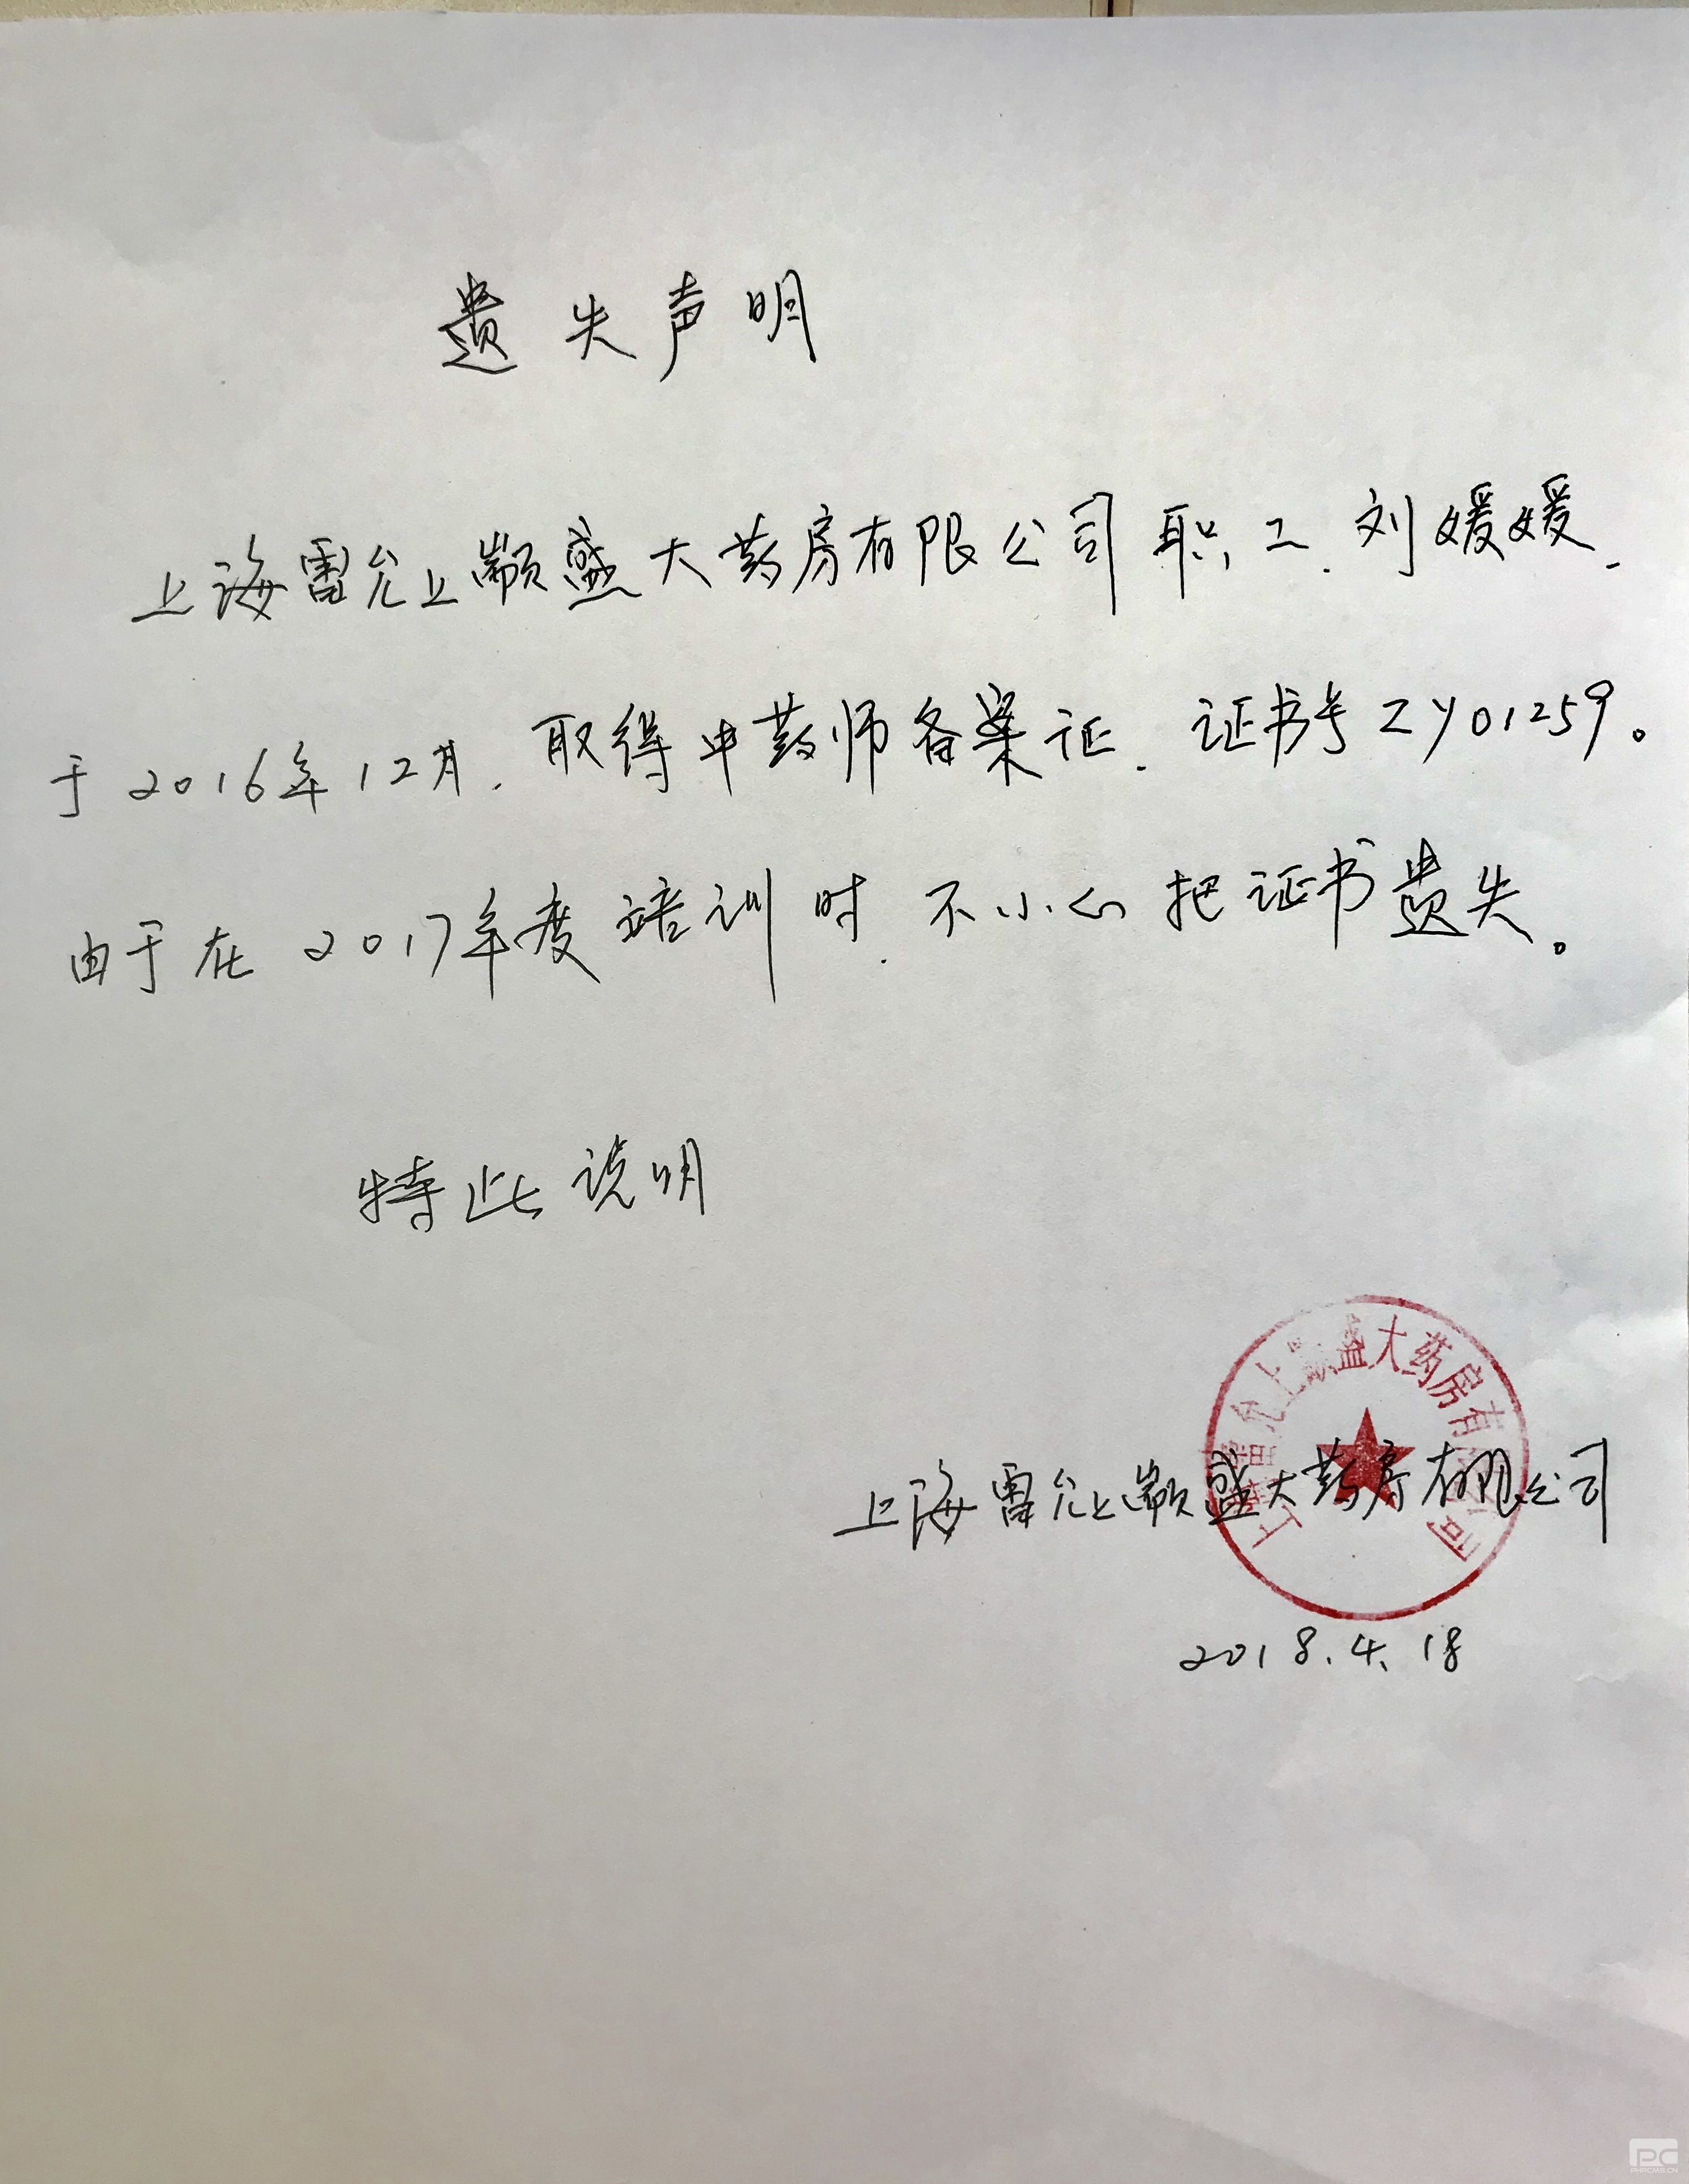 遗失声明
上海雷允上灏盛大药房有限公司职工.刘媛媛.
于2016年12月.取得中药师备案证.证书号ZY01259。
由于在2017年度培训时.不小心把证书遗失。
特此说明
上海雷允上灏盛大药房有限公司
上海雷允上灏盛大药房有限公司
2018.4.18
PC
PHPCMS.CN